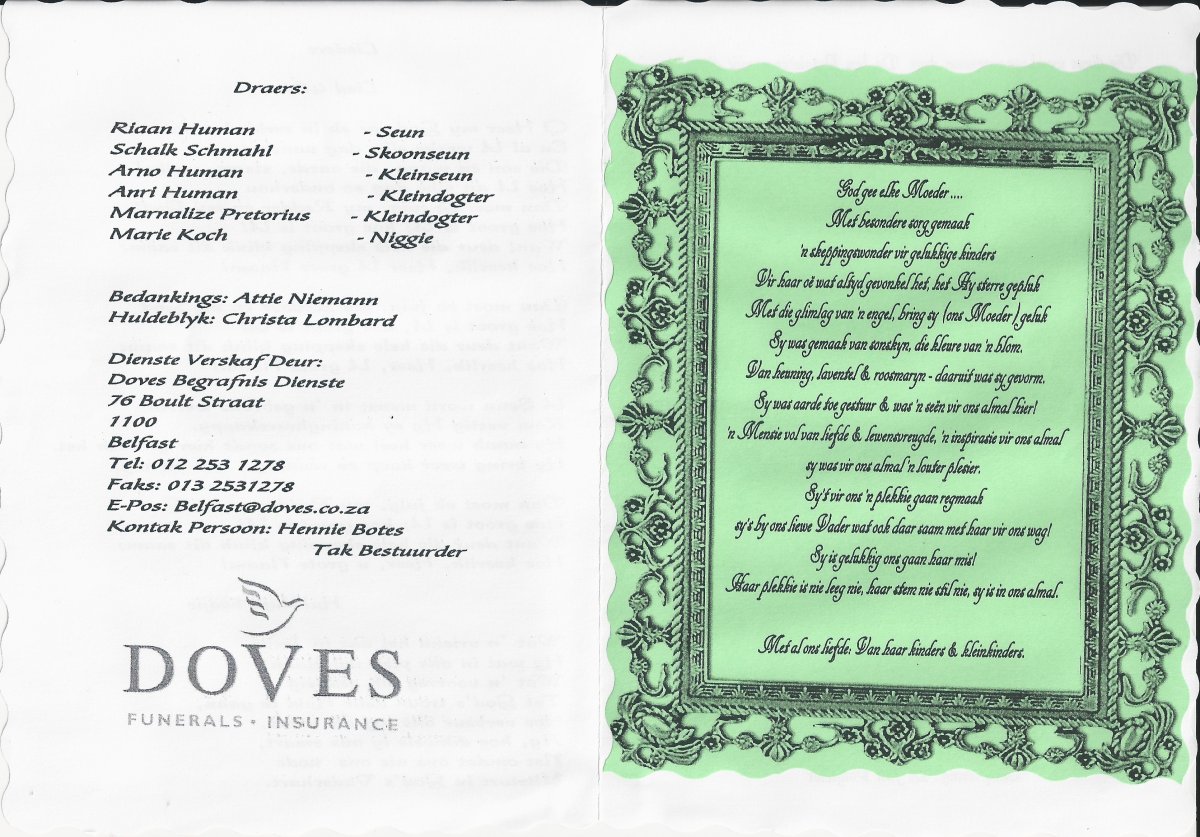 Draers:
Riaan Human - Seun
Schalk Schmahl - Skoonseun
Arno Human - Kleinseun
Anri Human - Kleindogter
Marnalize Pretorius - Kleindogter
Marie Koch - Niggie
Bedankings: Attie Niemann
Huldeblyk: Christa Lombard
Dienste Verskaf Deur:
Doves Begrafnis Dienste
76 Boult Straat
1100
Belfast
Tel: 012 253 1278
Faks: 013 2531278
E-Pos: Belfast@doves.co.za
Kontak Persoon: Hennie Botes
Tak Bestuurder
DOVES
FUNERALS · INSURANCE
God gee elke Moeder ....
Met besondere sorg gemaak
'n skeppingswonder vir gelukkige kinders
Vir haar oë wat altyd gevonkel het, het Hy sterre gepluk
Met die glimlag van 'n engel, bring sy (ons Moeder) geluk
Sy was gemaak van sonskyn, die kleure van 'n blom.
Van heuning, laventel & roosmaryn - daaruit was sy gevorm.
Sy was aarde toe gestuur & was 'n seën vir ons almal hier!
'n Mensie vol van liefde & lewensvreugde, 'n inspirasie vir ons almal
sy was vir ons almal 'n louter plesier.
Sy't vir ons 'n plekkie gaan regmaak
sy's by ons liewe Vader wat ook daar saam met haar vir ons wag!
Sy is gelukkig ons gaan haar mis!
Haar plekkie is nie leeg nie, haar stem nie stil nie, sy is in ons almal.
Met al ons liefde: Van haar kinders & kleinkinders.